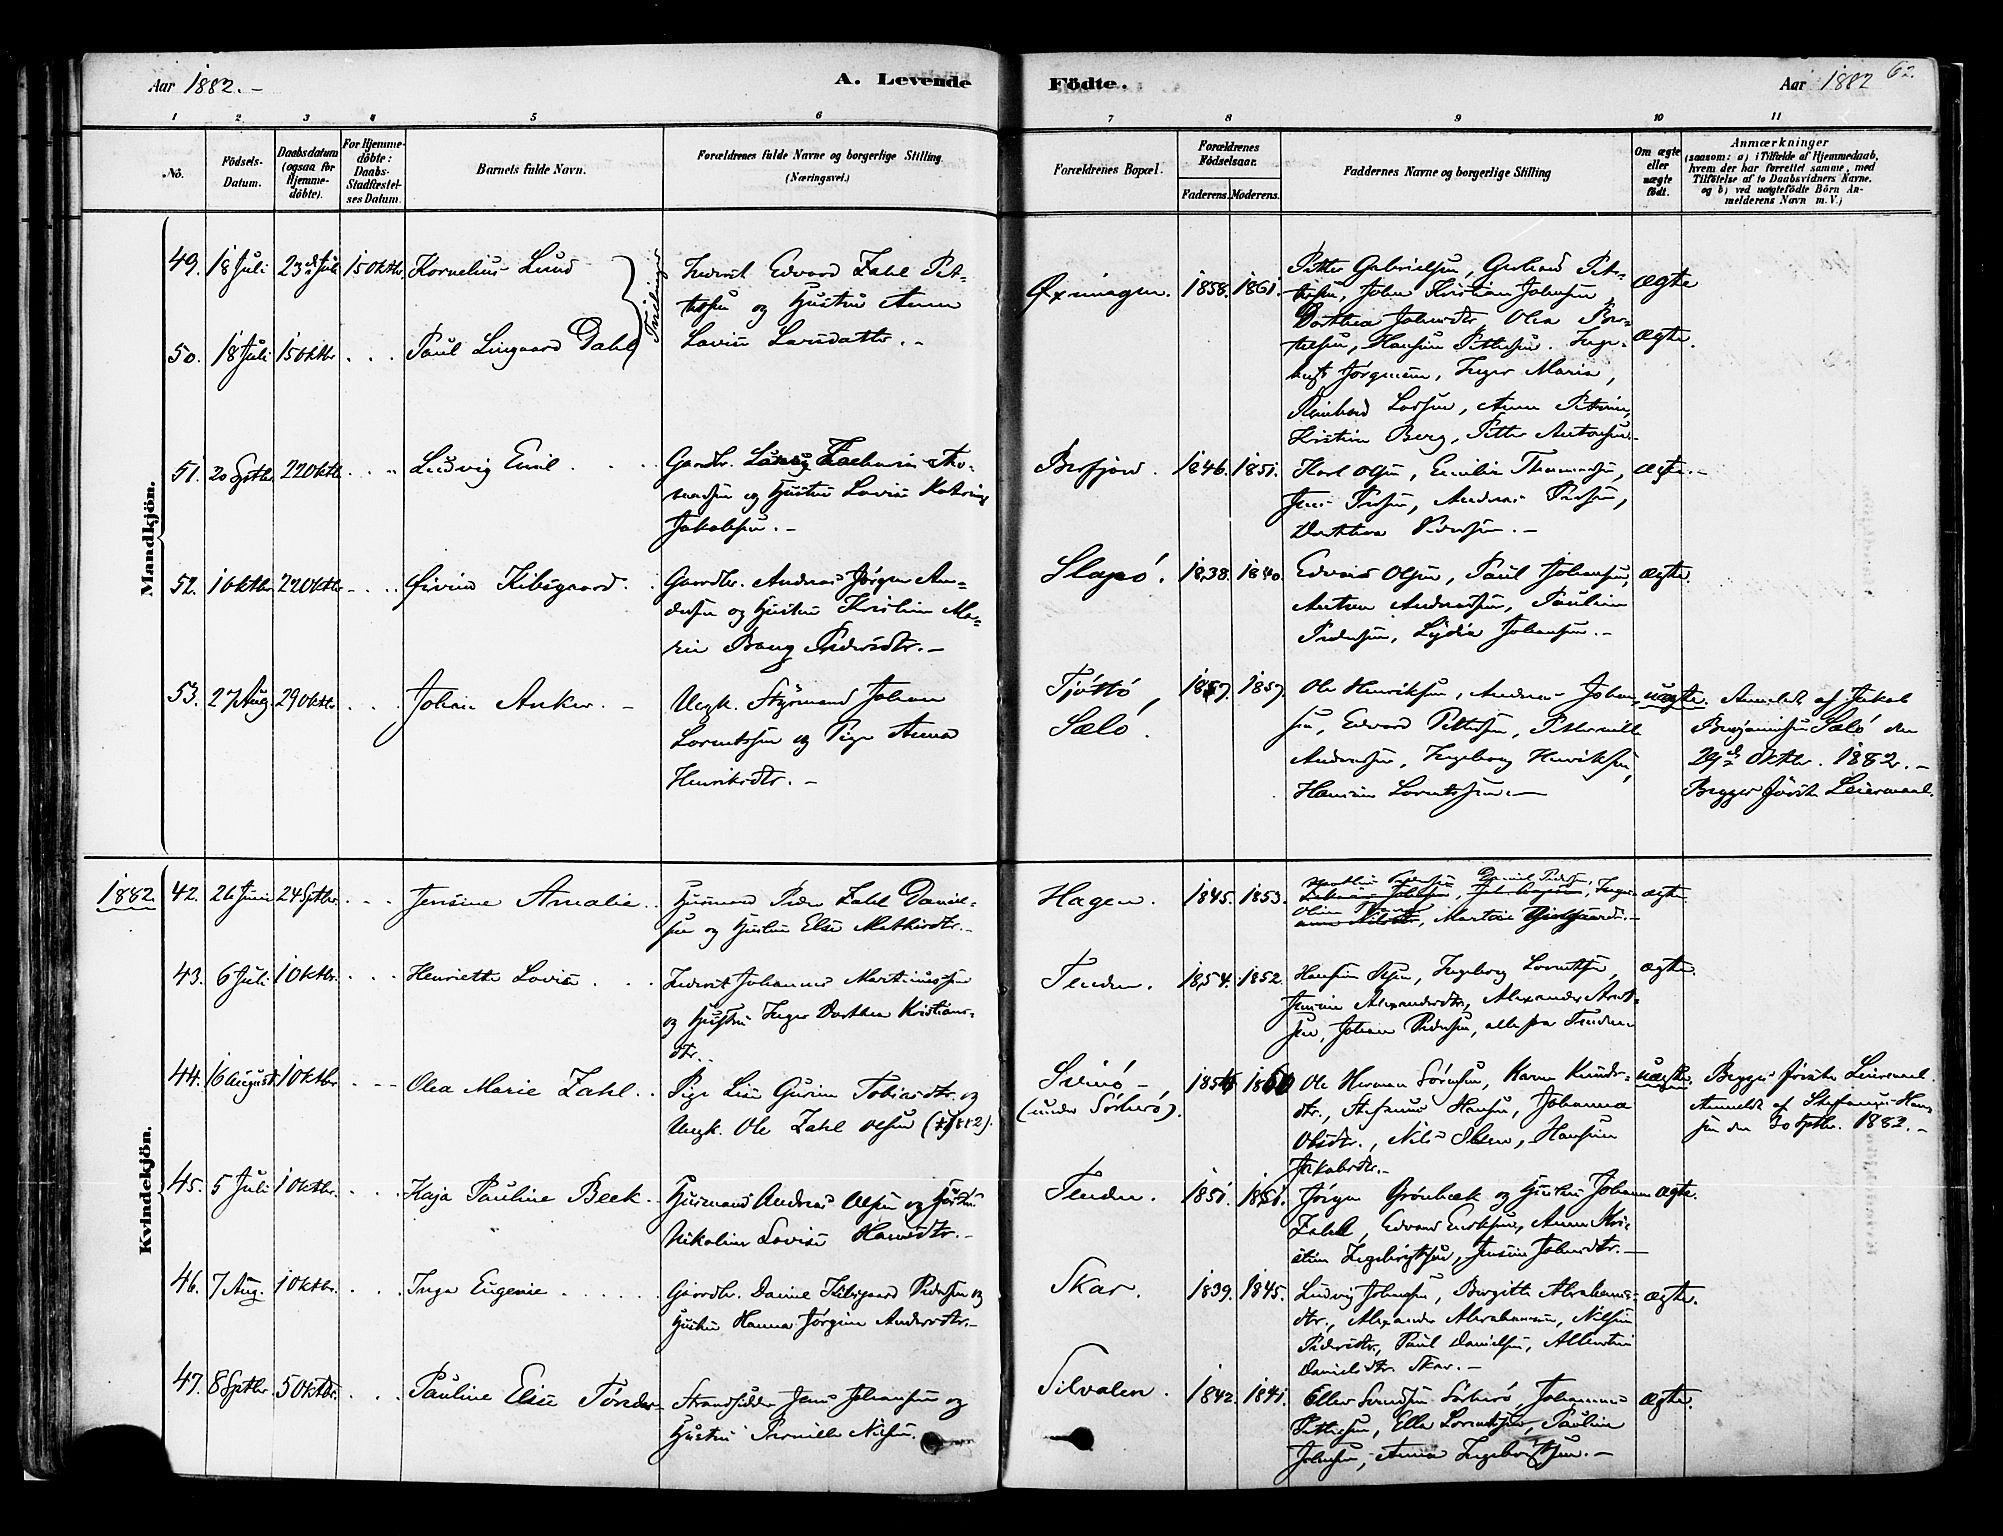 Aar 1882.-
A. Levende
Födte.
Aar 1882
62.
1 2 3 4 5 6 7 8 9 10 11
No.
Födsels-
Datum.
Daabsdatum
(ogsaa for
Hjemme-
döbte).
For Hjemme-
döbte:
Daabs-
Stadfæstel-
ses Datum.
Barnets fulde Navn.
Forældrenes fulde Navne og borgerlige Stilling.
(Næringsvei.)
Forældrenes Bopæl.
Forældrenes
Födselsaar.
Faderens. Moderens.
Faddernes Navne og borgerlige Stilling
Om ægte
eller
uægte
födt.
Anmærkninger
(saasom: a) i Tilfælde af Hjemmedaab,
hvem der har forrettet samme, med
Tilföielse af to Daabsvidners Navne.
og b) ved uægtefödte Börn An-
melderens Navn m.V.)
Mandkjön.
49. 18 Juli 23de Juli 15 Oktbr. Kornelius Lund
Tvillinger
Inderst Edvard Zahl Pet-
tersen og Hustru Anna
Lovise Larsdatter.-
Øxningen. 1858. 1861.
Petter Gabrielsen, Gerhard Pet-
tersen, John Kristian Johnsen
Dorthea Johnsdtr Olea Pet-
tersen, Hansine Pettersen. Inge-
Jørgensen, Inger Maria,
Reinhard Larsen, Anna Petrine,
Kristine Berg, Petter Antonsen-
ægte
50. 18 Juli 15 Oktbr ... Paul Lingaard Dahl
ægte.
51. 20 Sptbr. 22 Oktbr. ... Ludvig Emil
Gaardbr. Zacharias Tho-
massen og Hustru Lovise Katrine
Jakobsen.-
Borfjord. 1846. 1851.
Karl Olsen, Emilie Thomassen,
Jens Pedersen, Andreas Pedersen,
Dorthea Pedersen.-
ægte.-
52. 1 Oktbr. 22 Oktbr. ... Øivind Kibsgaard.
Gaardbr. Andreas Jørgen An-
dersen og Hustru Kristine Ma-
rie Bang Pedersdtr.-
Slapö. 1838. 1840.
Edvard Olsen, Paul Johansen,
Anton Andreassen, Pauline
Pedersen, Lydia Johansen.-
ægte.
53. 27 Aug. 29 Oktbr. ... Johan Anker.-
Ungk. Styrmand Johan
Lorentssen og Pige Anna
Henriksdtr.-
Tjöttö,
Salö.
1857. 1857.
Ole Henriksen, Andreas Johan-
sen, Edvard Pettersen, Petternille
Andersen, Ingeborg Henriksen,
Hansine Lorentssen.-
uægte.
Anmeldt af Jakob
Benjaminsen Salö den
29de Oktbr. 1882.-
Begges første Leiermaal.
1882
Kvindekjön.
42. 26 Juni 24 Sptbr. ... Jensine Amalie.
Husmand Peder Zahl Daniel-
sen og Hustru Else Mathisdtr.-
Hagen. 1845. 1853.
Martine
ægte.
43. 6 Juli 1 Oktbr. ... Henriette Lovise
Inderst Johannes Martinussen
og Hustru Inger Dorthea Kristians-
dtr.
Tenden. 1854. 1852.
Hansine Olsen, Ingeborg Lorentsen,
Jensine Alexandersdtr, Alexander Arnt-
sen, Johan Pedersen, alle fra Tenden
ægte.
44. 16 August. 1 Oktbr. --- Olea Marie Zahl.
Pige Lise Gurine Tobiasdtr. og
Ungk. Ole Zahl Olsen
Svinö-
(under Sörherö).
Ole Herman Sörensen, Karen Knuds-
dtr., Stefanus Hansen, Johanna
Olsdtr., Nils Olsen, Hansine
Jakobsdtr.-
uægte.
Begges første Leiermaal.
Anmeldt af Stefanus Han-
sen den 30 Sptbr. 1882.-
45. 5 Juli 1 Oktbr. ... Kaja Pauline Beck.
Husmand Andreas Olsen og Hustru
Nikoline Lovise Hansdtr.-
Tenden. 1851. 1851.
Jörgen Grönbæk og Hustru Johanna
Zahl, Edvard Eriksen, Anna Kri-
stine Ingebrigtsen, Jensine Johnsdtr.-
ægte.
46. 7 Aug. 1 Oktbr. ... Inga Eugenie
Gaardbr. Daniel Kibsgaard Pedersen og
Hustru Hanna Jørgine Andersdtr.-
Skar. 1839. 1845.
Ludvig Johnsen, Birgitte Abrahams-
dtr., Alexander Abrahamsen, Nilsine
Pedersdtr, Paul Danielsen, Albertine
Danielsdtr Skar.-
ægte.
47. 8 Sptbr. 5 Oktbr. ... Pauline Elise Tönder-
Strandsidder Jens Johansen og
Hustru Pernille Nilsen.
Silvalen. 1842. 1841.
Eller Svendsen Sörherö, Johannes
Pettersen, Ella Lorentsen, Pauline
Johnsen, Anna Ingebrigtsen.-
ægte.